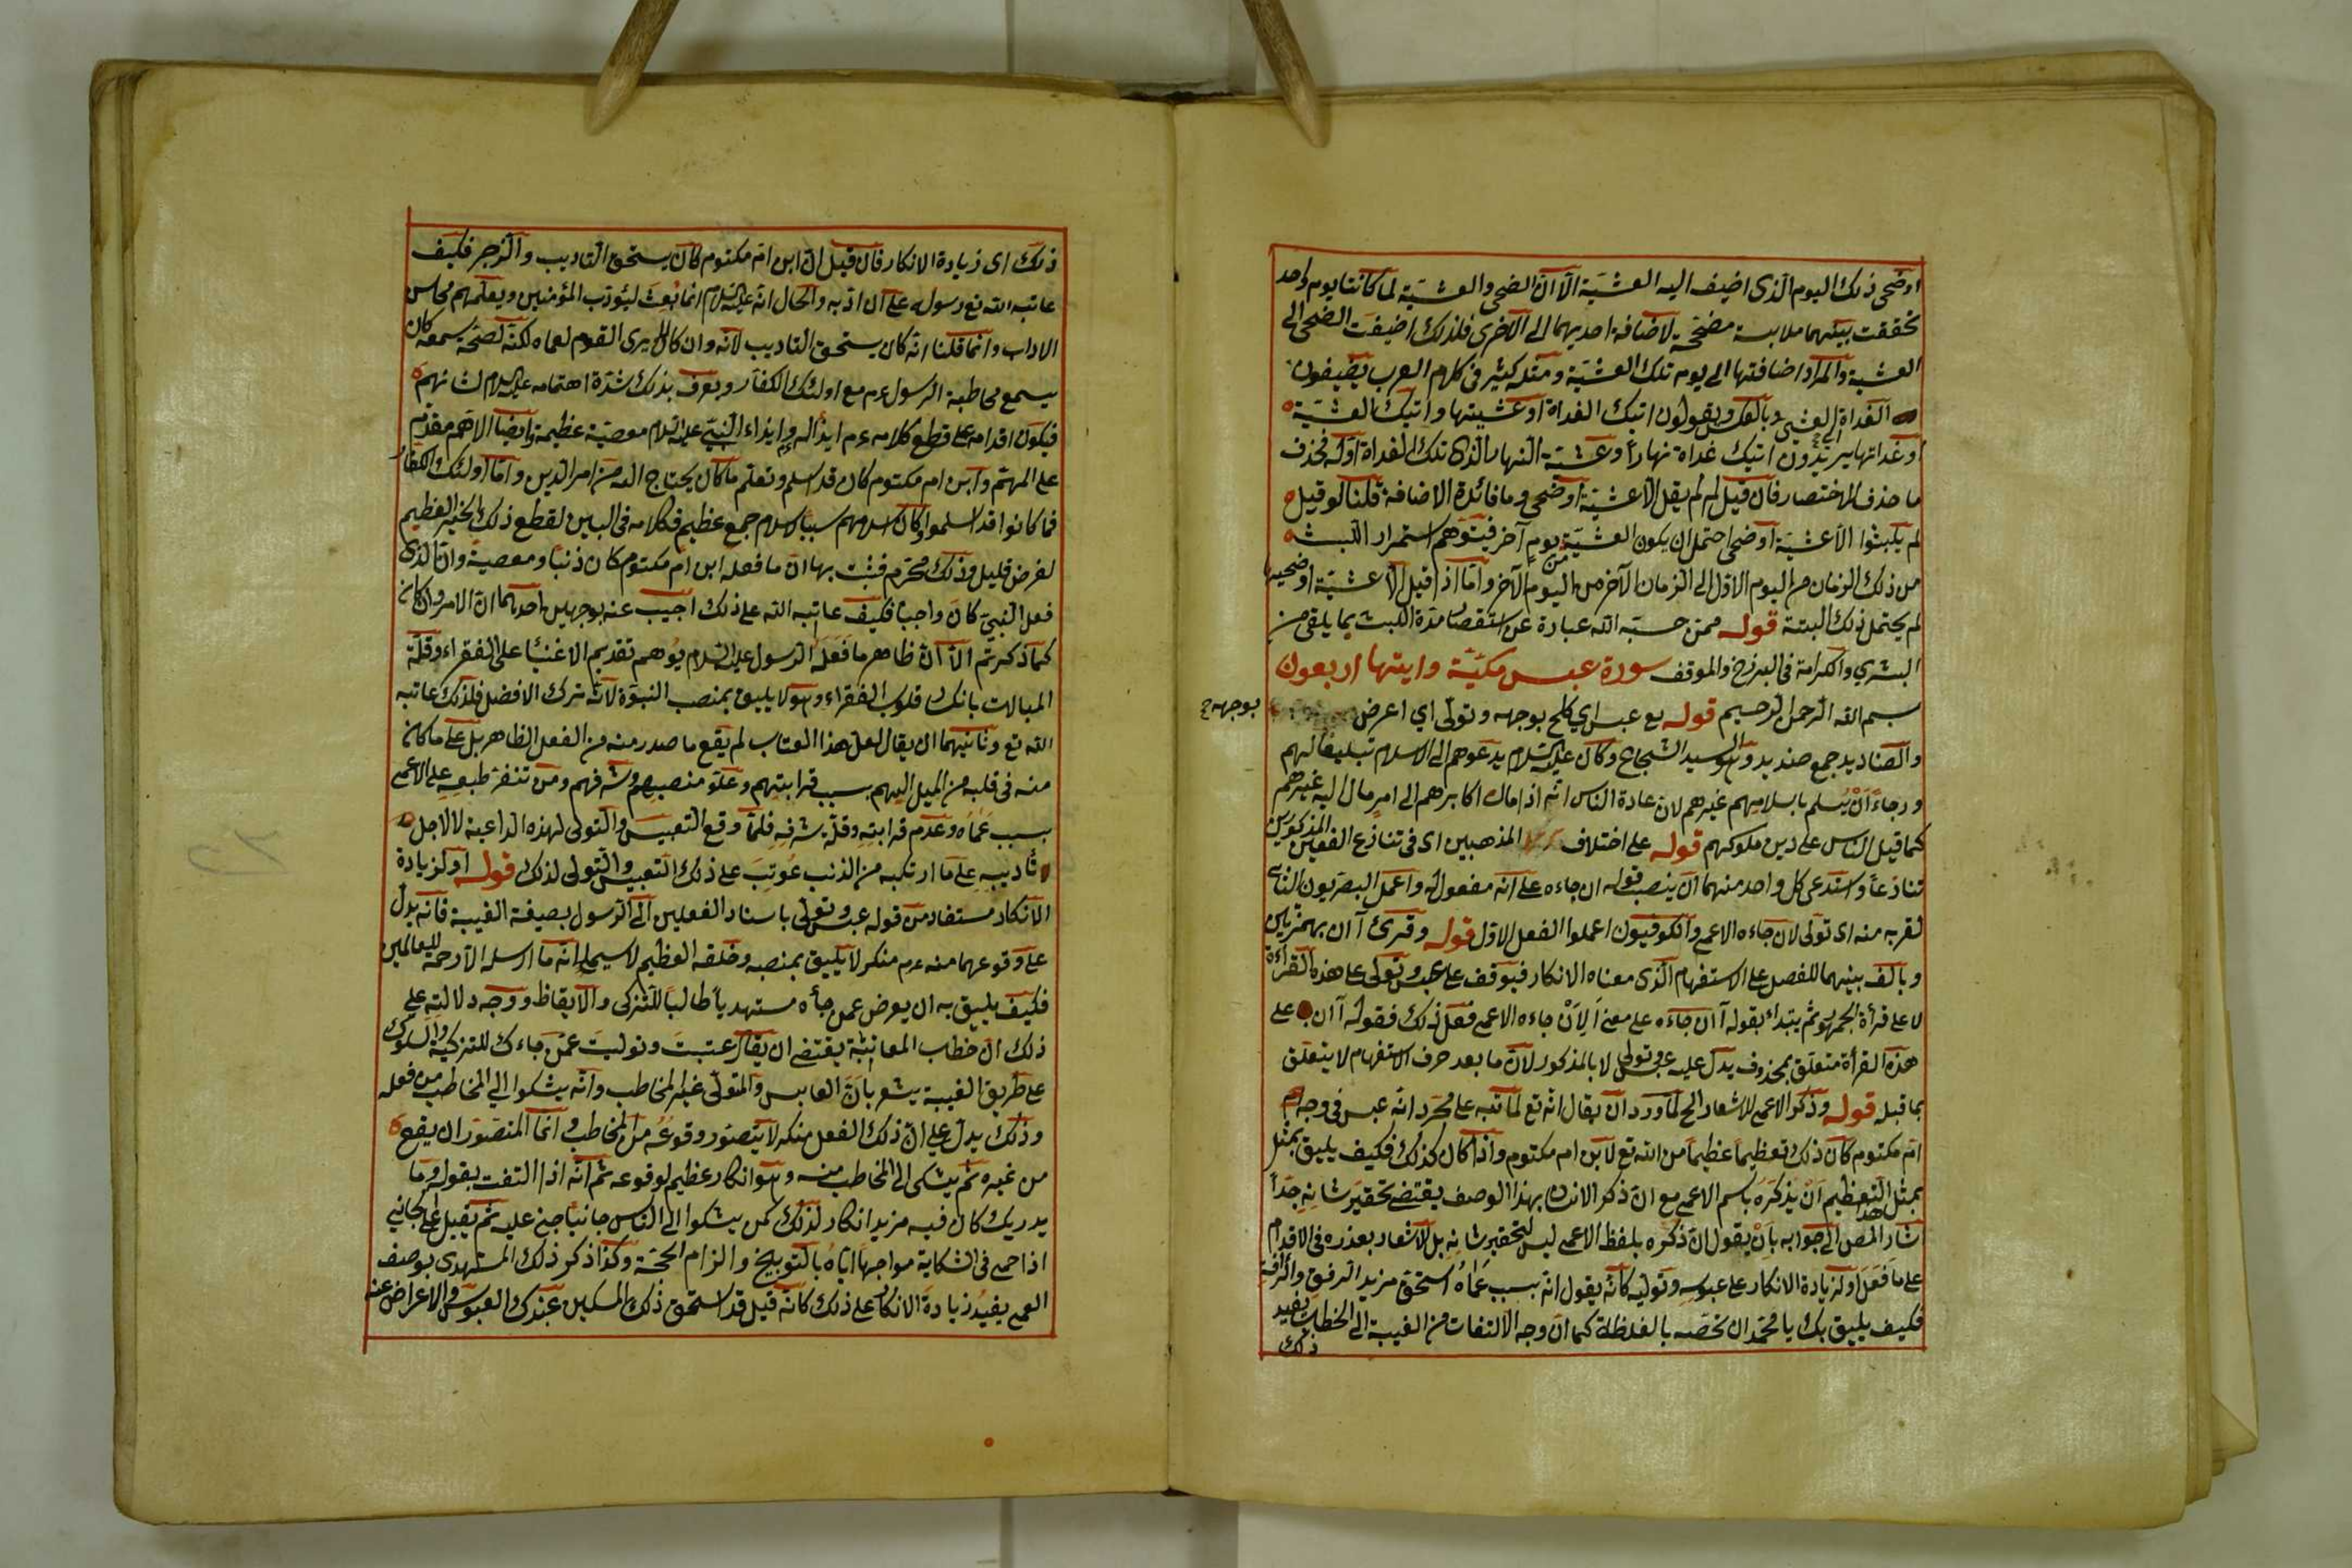 او ضحى ذلك اليوم الذى اضيف اليه العشيّة الّا انّ الضحى والعشيّة لما كانتا يوم واحد
تحققت بينهما ملابسة مصحّحة لاضافة احديهما الى الاخرى فلذلك اضيفت الضحى الى
العشية والمراد اضافتها الى يوم تلك العشيّة ومثله كثير فى كلام العرب يضيفون
الغداة الى العشى وبالعكس يقولون اتيك الغداة او عشيتها واتيك العشيّة
او غداتها يريدون اتيك غداة نهار او عشية النهار الذى تلك الغداة اوله فحذف
ما حذف للاختصار فان قيل لم لم يقل الا عشية او ضحى وما فائدة الاضافة قلنا لو قيل
لم يلبثوا الا عشيّة او ضحى احتمل ان يكون العشيّة من يوم آخر فيتوهم استمرار اللبث
من ذلك الزمان من اليوم الاول الى الزمان الآخر من اليوم الآخر وامّا اذا قيل الا عشيّة او ضحيها
لم يحتمل ذلك البتة قوله ممن حسبه الله عبارة عن استقصار مدة اللبث بما يلقى من
البشرى والكرامة فى البرزخ والموقف سورة عبس مكيّة وايتها اربعون
بسم الله الرحمن الرحيم قوله تع عبس اي كلح بوجهه وتولى اي اعرض بوجهه
والصناديد جمع صنديد وهو السيد الشجاع وكان عليه السلام يدعوهم الى الاسلام تبليغا لهم
ورجاءً اَنْ يُسلم باسلامهم غيرهم لان عادة الناس انه اذا مال اكابرهم الى امر مال اليه غيرهم
كما قيل الناس على دين ملوكهم قوله على اختلاف المذهبين اى فى تنازع الفعلين المذكورين
تنازعا واستدعى كل واحد منهما ان ينصب قوله ان جاءه على انه مفعول له واعمل البصريون الثانى
لقربه منه اى تولى لان جاءه الاعمى والكوفيون اعملوا الفعل الاول قوله وقرئ آ ان بهمزتين
وبالف بينهما للفصل على الاستفهام الذى معناه الانكار فيوقف على عبس وتولى على هذه القراءة
لا على قرأة الجمهور ثم يبتداء بقوله آ ان جاءه على معنى اَلِاَنْ جاءه الاعمى فعل ذلك فقوله آ ان على
هذه القرأة متعلق بمحذوف يدل عليه عبس وتولى لا بالمذكور لان ما بعد حرف الاستفهام لا يتعلق
بما قبله قوله وذكر الاعمى للاشعار الخ لما ورد ان يقال انه تع لما عاتبه على مجرد انه عبس فى وجه ابن
ام مكتوم كان ذلك تعظيما عظيما من الله تع لابن ام مكتوم واذا كان كذلك فكيف يليق بمثل
بمثل هذا التعظيم اَنْ يذكره باسم الاعمى مع ان ذكر الانسان بهذا الوصف يقتضى تحقير شانه جدّاً
اشار المص الى جوابه بِاَنْ يقول ان ذكره بلفظ الاعمى ليس لتحقير شانه بل للاشعار بعذره فى الاقدام
على ما فعل او لزيادة الانكار على عبوسه وتوليه كانه يقول انه بسبب عماه استحق مزيد الرفق والرأفة
فكيف يليق بك يا محمد ان تخصه بالغلظة كما ان وجه الالتفات من الغيبة الى الخطاب يفيد
ذلك
ذلك اى زيادة الانكار فان قيل ان ابن ام مكتوم كان يستحق التاديب والزجر فكيف
عاتبه الله تع رسوله على ان ادّبه والحال انه عليه السلام انما بُعِثَ ليؤدّب المؤمنين ويعلمهم محاسن
الاداب وانما قلنا انه كان يستحق التاديب لانه وان كان لا يرى القوم لعماه لكنه لصحة سمعه كان
يسمع مخاطبة الرسول عم مع اولئك الكفار ويعرف بذلك شدة اهتمامه عليه السلام لشانهم
فيكون اقدامه على قطع كلامه عم ايذاء له وايذاء النبي عليه السلام معصية عظيمة وايضا الاهم مقدم
على المهتم وابن ام مكتوم كان قد اسلم وتعلم ما كان يحتاج اليه من امر الدين وامّا اولئك الكفار
فما كانوا قد اسلموا وكان اسلامهم سببا لاسلام جمع عظيم فكلامه فى البين لقطع ذلك الخير العظيم
لغرض قليل وذلك محرم فثبت بها ان ما فعله ابن ام مكتوم كان ذنبا ومعصية وان الذى
فعل النبي كان واجبا فكيف عاتبه الله على ذلك اجيب عنه بوجهين احدهما ان الامر وان كان
كما ذكرتم الا ان ظاهر ما فعله الرسول عليه السلام يوهم تقديم الاغنيا على الفقراء وقلة
المبالات بانكسار قلوب الفقراء وهو لا يليق بمنصب النبوة لانه ترك الافضل فلذلك عاتبه
الله تع وثانيهما ان يقال لعل هذا العتاب لم يقع ما صدر منه من الفعل الظاهر بل على ما كان
منه فى قلبه من الميل اليهم بسبب قرابتهم وعلو منصبهم وشرفهم ومن تنفر طبعه على الاعمى
بسبب عَماه وعدم قرابته وقلّة شرفه فلما وقع التعبيس والتولى لهذه الداعية لا لاجل
تأديبه على ما ارتكبه من الذنب عُوتِبَ على ذلك التعبيس والتولى لذلك قوله او لزيادة
الانكار مستفاد من قوله عبس وتولى باسناد الفعلين الى الرسول بصيغة الغيبة فانه يدل
على وقوعهما منه عم منكر لا يليق بمنصبه وخلقه العظيم لا سيما انه ما ارسله الا رحمة للعالمين
فكيف يليق به ان يعرض عمن جأه مستهديا طالبا للتزكى والايقاظ ووجه دلالته على
ذلك ان خطاب المعاتبة يقتضى ان يقال عبست وتوليت عمن جاءك للتزكية والسلوك
على طريق الغيبة يشعر بان العابس والمتولى غير المخاطب وانه يشكوا الى المخاطب من فعله
وذلك يدل على ان ذلك الفعل منكر لا يتصور وقوعه من المخاطب وانما المتصور ان يقع
من غيره ثم يشكى الى المخاطب منه وهو انكار عظيم لوقوعه ثم انه اذا التفت بقوله وما
يدريك كان فيه مزيد انكار لذلك كمن يشكوا الى الناس جانيا جنى عليه ثم يقبل على الجانى
اذا حمى فى الشكاية مواجها اياه بالتوبيخ والزام الحجة وكذا ذكر ذلك المستهدى بوصف
العمى يفيد زيادة الانكار على ذلك كانه قيل قد استحق ذلك المسكين عندك العبوس والاعراض عنه